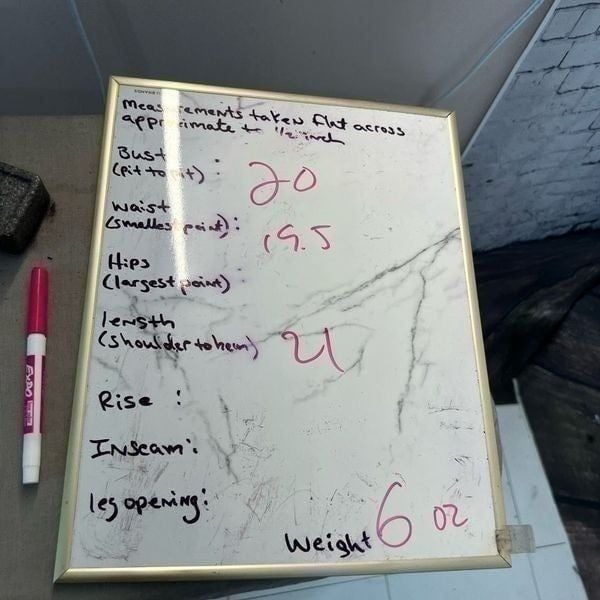 Measurements taken flat across
approximate to 1/2 inch
Bust
(pit to pit) : 20
waist
(smallest point) : 19.5
Hips
(largest point)
length
(shoulder to hem) 21
Rise :
Inseam :
leg opening :
Weight 6 oz
EXPO